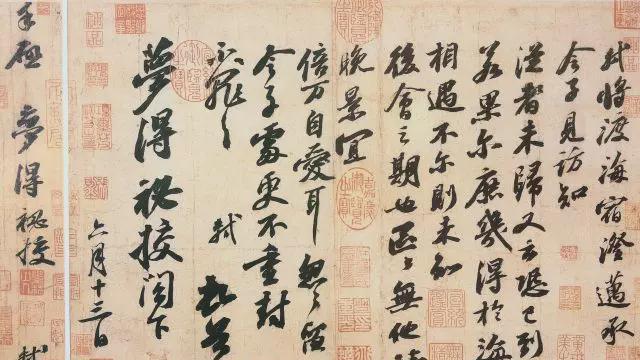 軾將渡海宿澄邁承
令子見訪知
從者未歸又云恐已到
若果尔庶幾得於海
相遇不尔則未知
後會之期也區々無他
晚景宜
倍万自愛耳忽々留
令子處更不重封
不罪々
軾 頓首
夢得祕校閣下
六月十三日
手啓 夢得祕校
軾